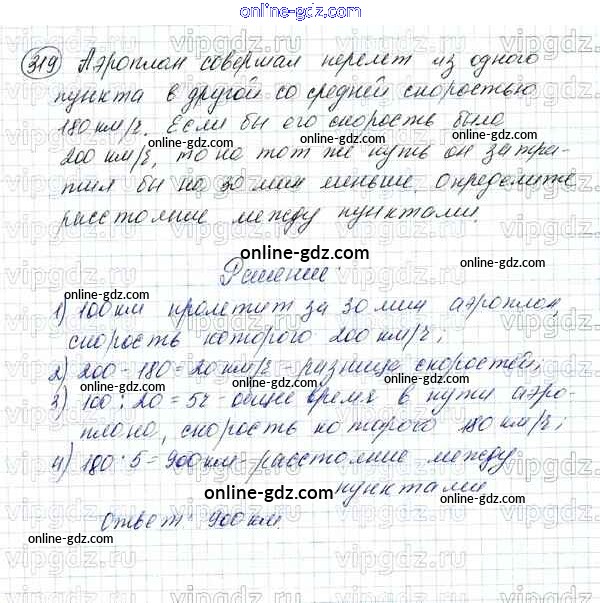 online-gdz.com
319 Аэроплан совершал перелет из одного
пункта в другой со средней скоростью
180 км/ч. Если бы его скорость была
200 км/ч, то на тот же путь он затра-
тил бы на 30 мин меньше. Определите
расстояние между пунктами.
online-gdz.com
Решение:
online-gdz.com
1) 100 км пролетит за 30 мин аэроплан,
скорость которого 200 км/ч;
online-gdz.com
2) 200 - 180 = 20 км/ч - разница скоростей;
online-gdz.com
3) 100 : 20 = 5ч - общее время в пути аэро-
плана, скорость которого 180 км/ч;
online-gdz.com
4) 180 · 5 = 900 км - расстояние между
online-gdz.com
пунктами
online-gdz.com
Ответ: 900 км.
online-gdz.com